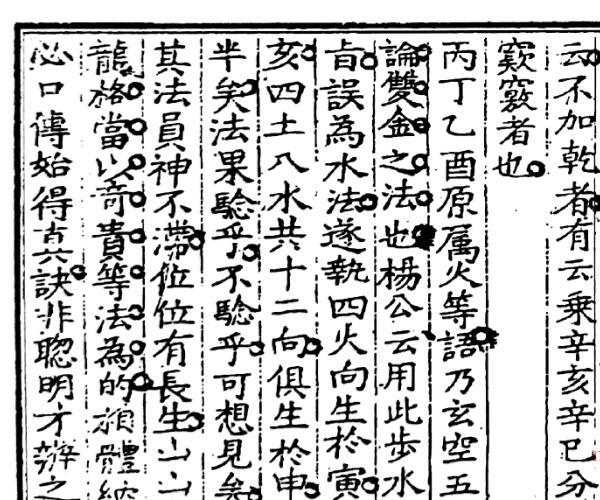 云不加乾者有云乗辛亥辛巳分
窾竅者也
丙丁乙酉原属火等語乃玄空五
論雙金之法也楊公云用此步水
旨誤為水法遂執四火向生於寅
亥四土八水共十二向俱生於申
半矣法果驗乎不驗乎可想見矣
其法員神不滯位位有長生山山
龍格當以奇貴等法為的顛體納
必口傳始得真訣非聰明才辦之